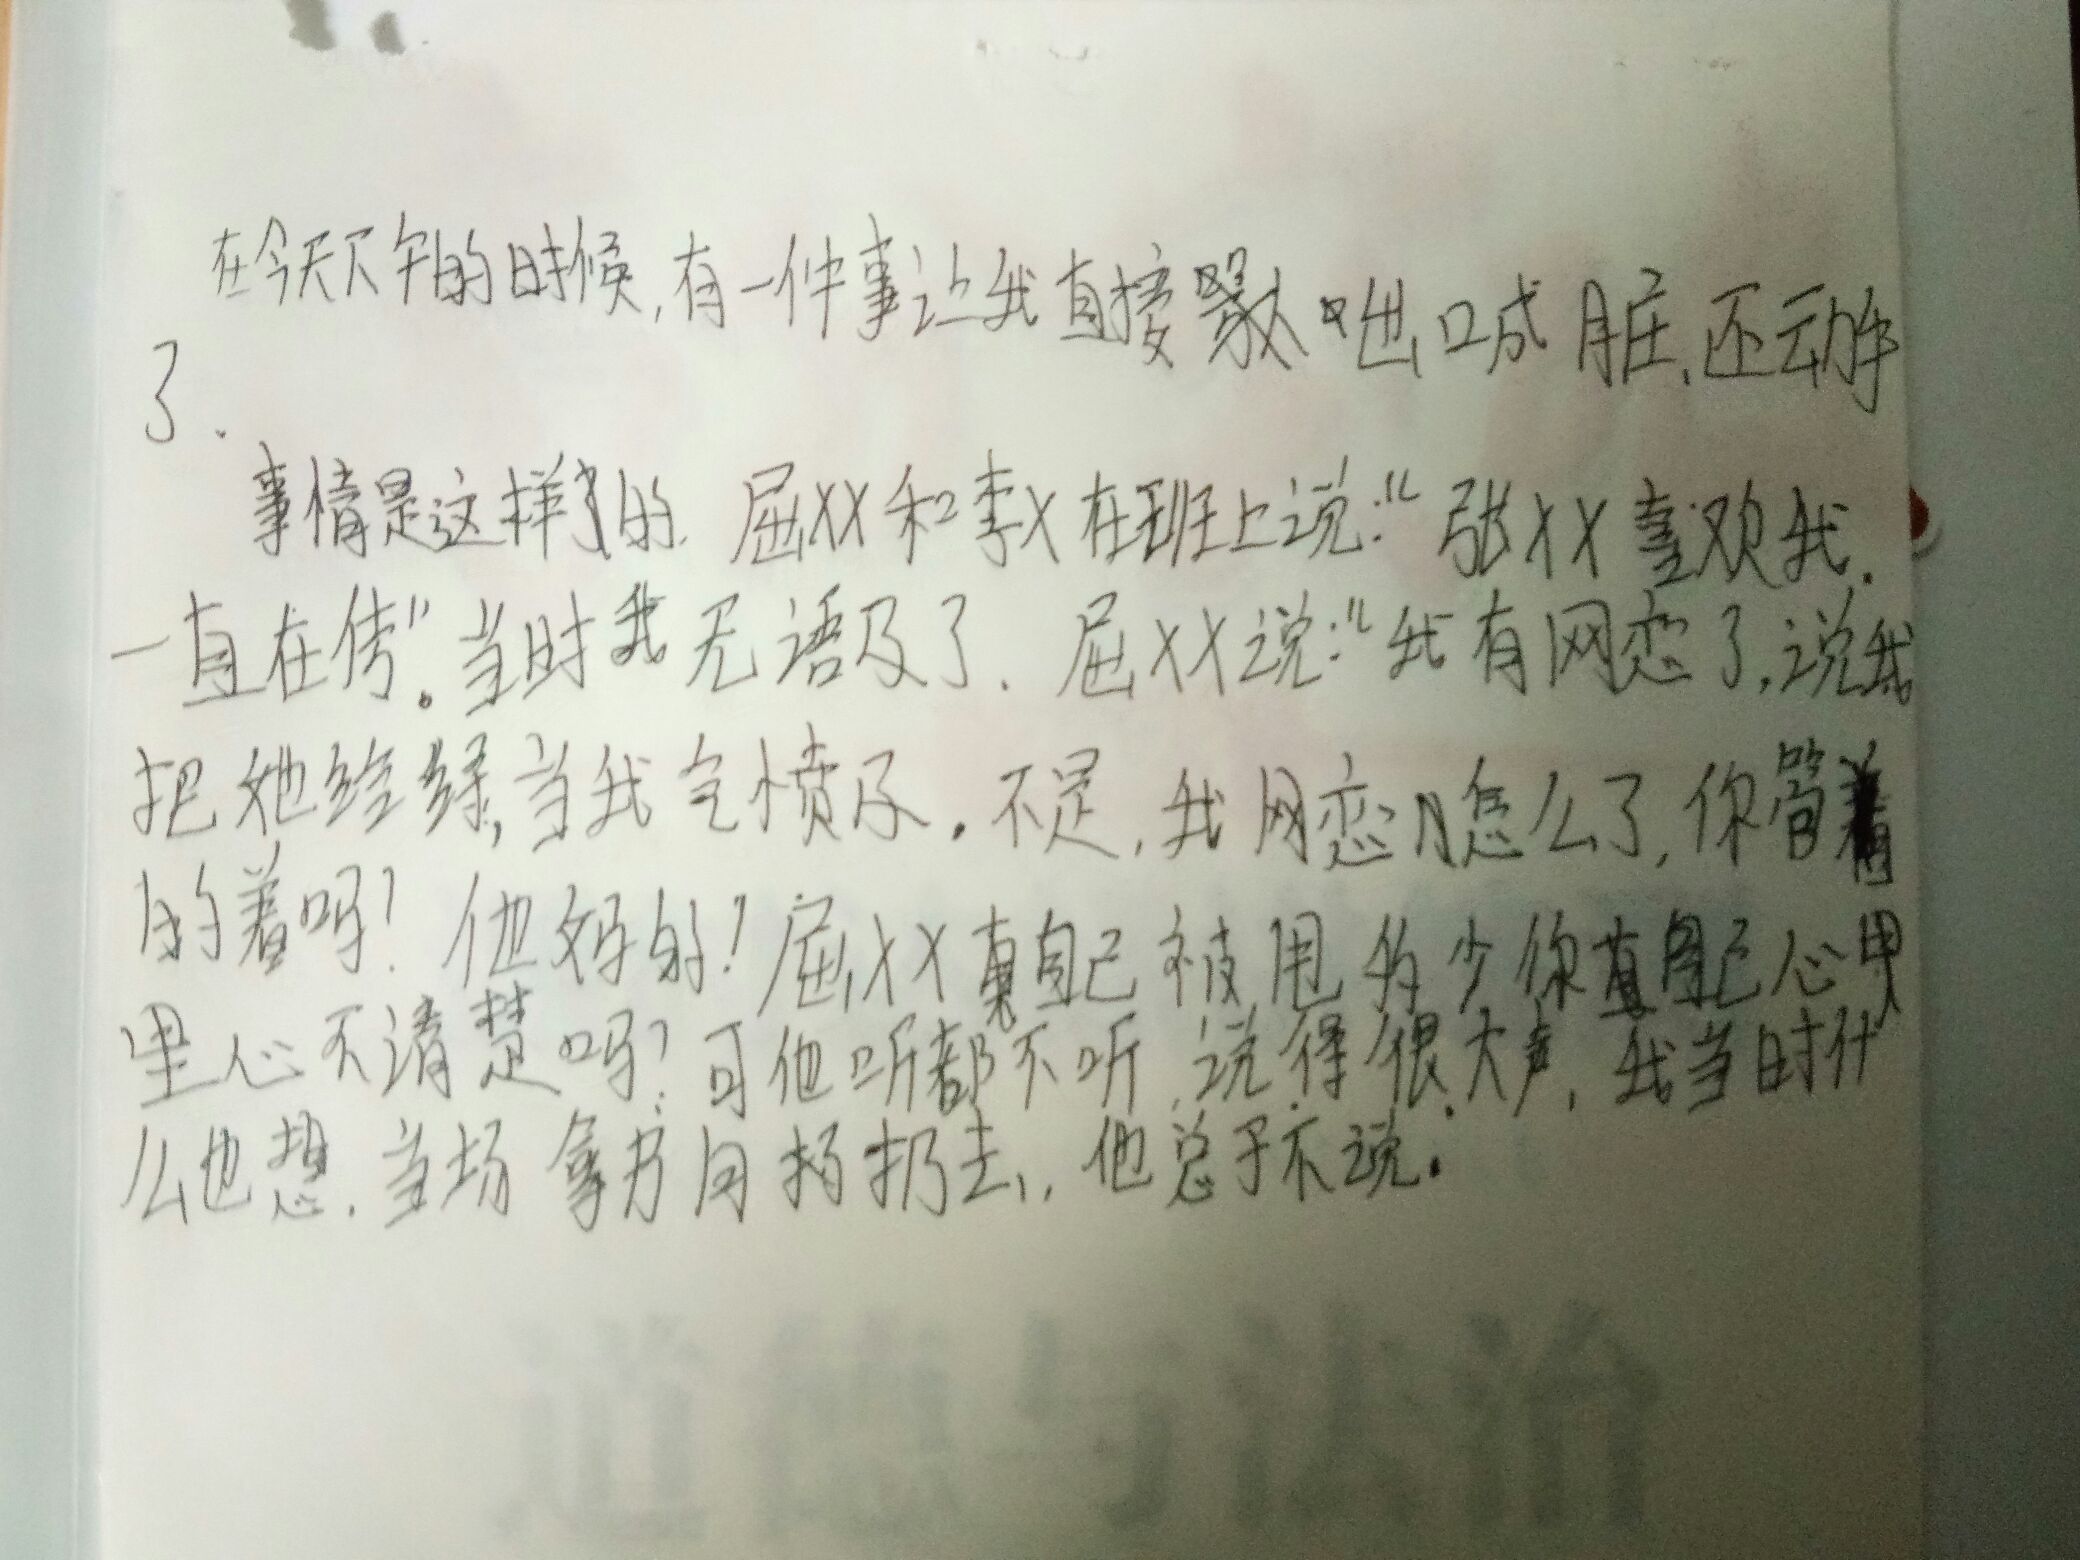 在今天下午的时候,有一件事让我直接 口吐口喊脏,还动手
了.
事情是这样的.屈XX和李X在班上说:“张XX喜欢我.
一直在传”。当时我无语及了.屈XX说:“我有网恋了,说我
把她给绿,当我气愤及.不是,我网恋怎么了,你管着
的着吗?他妈的!屈XX真自己被甩的少你真自己心里
里心不清楚吗?可他听都不听,说得很大声,我当时什
么也想.当场拿书向扔去,他总于不说.
道德与法治